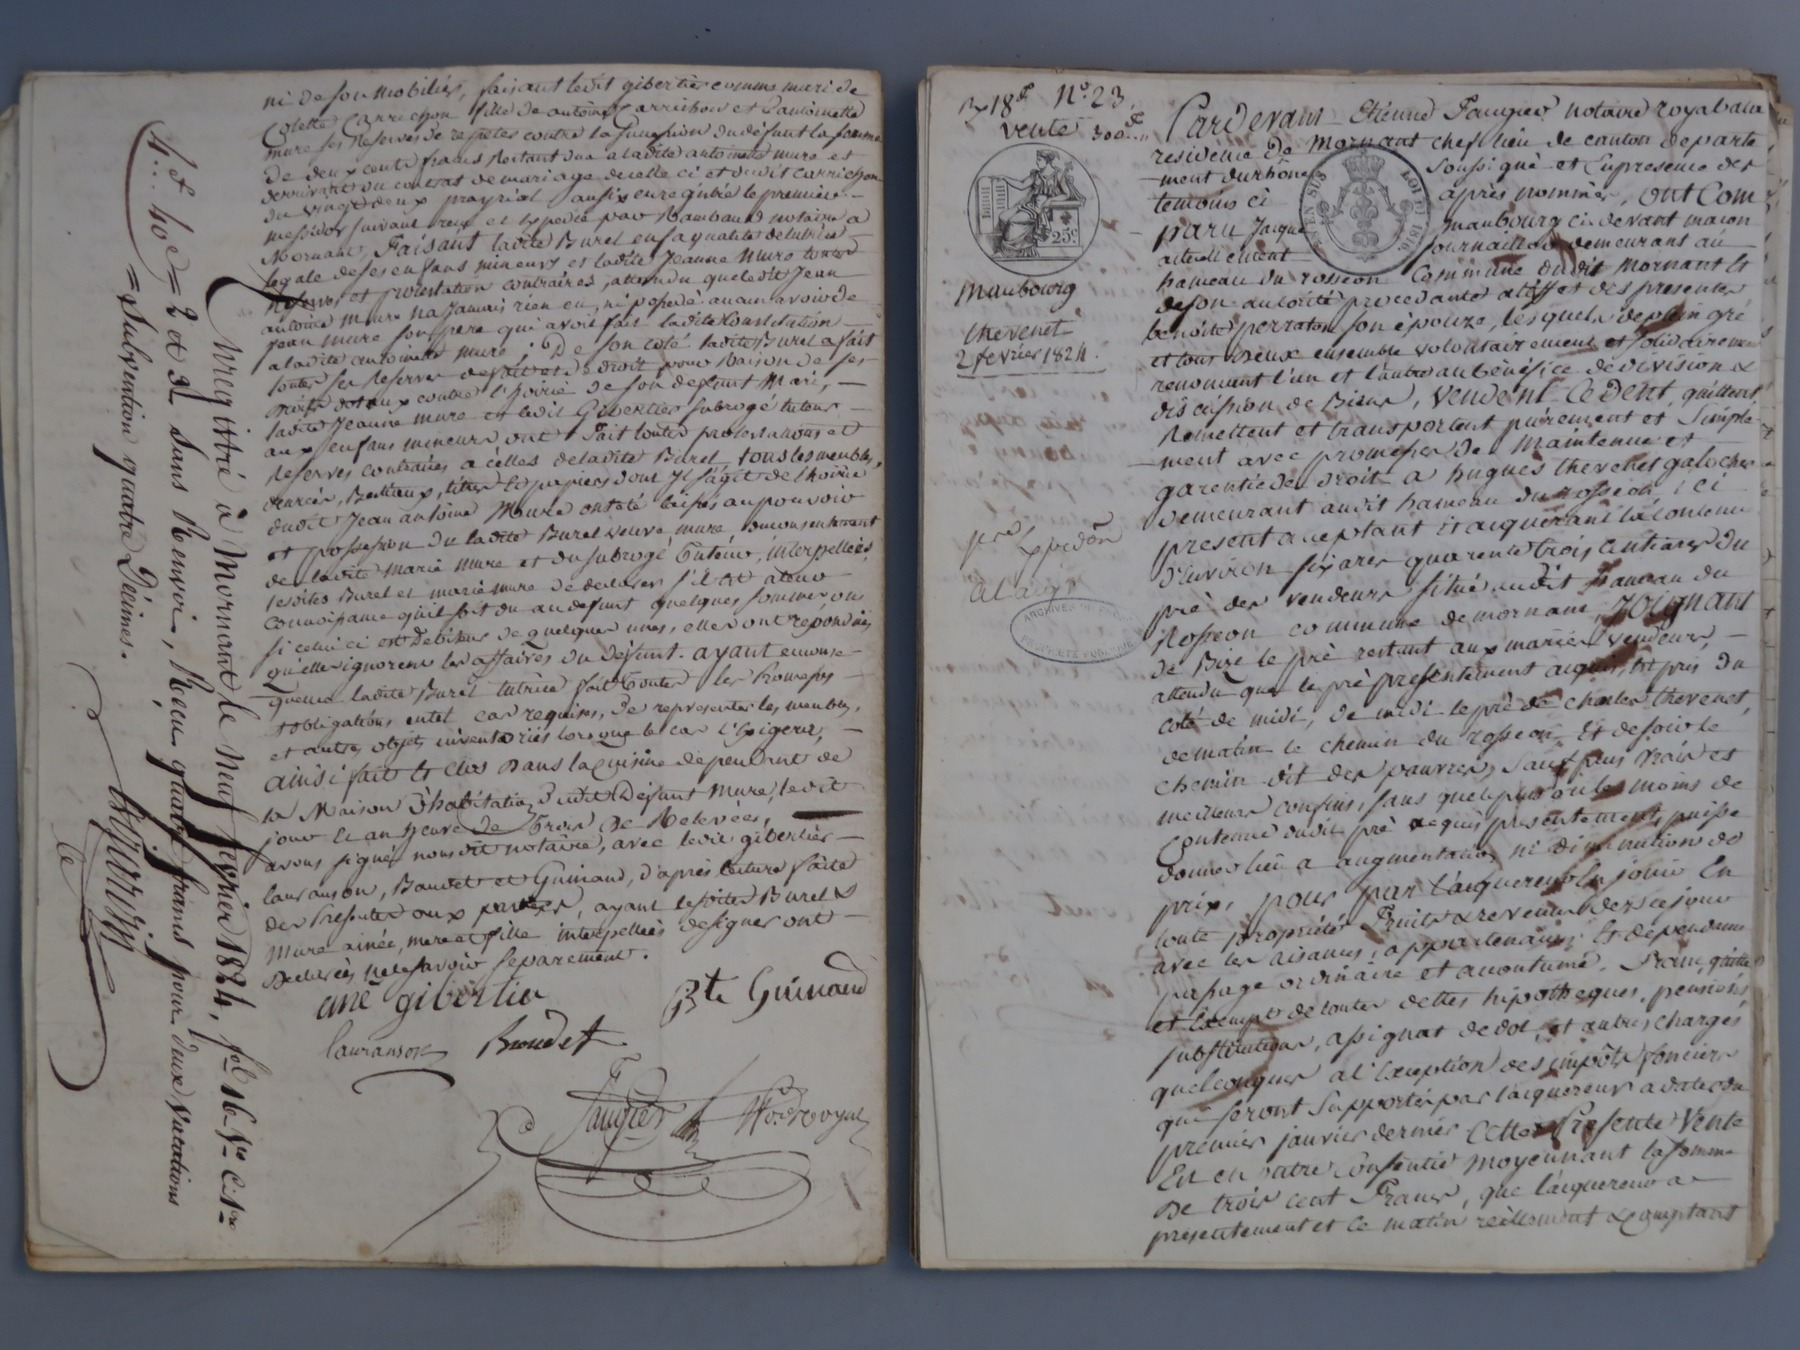 ni de son mobilier, faisant ledit gibertier comme mari de
Colette Carrichon fille de antoine Carrichon et d'antoinette
mure ses Reserves de repeter contre la succession du défunt la somme
de deux cents francs Restant due a ladite antoinette mure et
derrivants du contrat de mariage de celle ci et dudit Carrichon
du vingt deux prayrial an six enregistré le premier
messidor suivant reçu et Expedié par Rambaud notaire a
Mornant, Faisant ladite Burel en sa qualité de tutrice
legale de ses enfans mineurs et ladite Jeanne Mure toutes
Reserves et protestation contraires, attendu que ledit Jean
antoine Mure na Jamais rien eu, ni possedé aucun avoir de
jean mure son pere qui avoit fait ladite Constitution
a ladite antoinette mure ; De son coté ladite Burel a fait
toutes ses Reserves de fait et de droit pour Raison de ses
droits dotaux contre l'hoirie de son defunt Mari,
ladite Jeanne mure et ledit Gibertier subrogé tuteur
aux enfans mineurs ont fait toutes protestations et
Reserves contraires a celles de ladite Burel tous les meubles,
denrées, Bestiaux, titres et papiers dont Il s'agit de l'hoirie
dudit Jean antoine Mure ont eté laissés au pouvoir
et possession de ladite Burel veuve mure du consentement
de ladite Marie Mure et du subrogé Tuteur, interpellées
lesdites Burel et marie mure de declarer s'il est a leur
connoissance qu'il soit du au defunt quelques sommes ou
si celui ci est Debiteur de quelques unes, elles ont répondu
qu'elles ignorent les affaires du défunt. ayant en conse-
quence ladite Burel tutrice fait toutes les soumissions
et obligations en tel cas requises, de representer les meubles,
et autres objets inventoriés lorsque le cas l'Exigera,
ainsi fait et clos Dans la cuisine dépendant de
la Maison d'habitation dudit Défunt Mure, ledit
jour et an heure de Trois De Relevées,
avons signé nous dit notaire, avec ledit gibertier
lauranson, Baudet et Guinand, d'après lecture Faite
des presentes aux parties, ayant lesdites Burel &
Mure ainée, mere et fille interpellées de signer ont
Declarées ne le savoir separement.
ané gibertier
Bte Guinand
lauranson
Baudet
Faugier
Nore royal
Enregistré à Mornant le neuf fevrier 1824, fol. 16 Vo C. 1re
2 et 3 Sans Renvoi, Reçu quatre francs pour deux Vacations
4f 40c = Subvention quatre Décimes.
Dx 18f No 23.
Vente 300f
25c
EN SUS
LOI DE 1816
Maubourg
thevenet
2 fevrier 1824.
ARCHIVES
PROPRIETE PUBLIQUE
Pardevant Etienne Faugier notaire royal a la
residence de Mornant chef lieu de canton departe
ment du rhône Soussigné et En presence des
temoins ci après nommés, ont Com
paru Jacque maubourg ci devant macon
actuellement Journailler demeurans au
hameau du rosseon Commune dudit Mornant Et
de son autorité procedante a l'Effet des presentes
benoite perraton son épouze, lesquels de plein gré
et tous deux ensemble volontairement et solidairement
renoncant l'un et l'autre au bénéfice de division &
discussion de Biens, Vendent Cedent, quittent
Remettent et transportent purement et Simple
ment avec promesse de Maintenue et
garentie de droit a hugues thevenet galocher
demeurant audit hameau du rosseon, ici
present acceptant Et acquerant la contenue
d'Environ six ares quarente trois centiares du
pré des vendeurs situé audit hameau du
Rosseon commune de mornant, Joignant
de Bize le pré restant aux mariés vendeurs,
attendu que le pré presentement acquis, est pris du
coté de midi, de midi le pré de charles thevenet,
de matin le chemin du rosseon Et de soir le
chemin dit des pauvres, Sauf plus Vrais et
meilleurs confins, sans que le plus ou le moins de
Contenue dudit pré acquis presentement, puisse
donner lieu a augmentation ni diminution de
prix, pour par l'acquereur En jouir En
toute propriété Fruits & revenus dès ce jour
avec les aisances, appartenances Et dépendances
passage ordinaire et accoutumé. Franc, quitte
et Exempt de toutes dettes hipotheques, pensions
substitutions, assignat de dot, et autres charges
quelconques a l'Exeption des impôts fonciers
qui seront Supportés par l'acquereur a dater du
premier janvier dernier Cette Presente Vente
Est en outre Consentie moyennant la somme
De trois cent Francs, que l'acquereur a
presentement et ce matin réellement & comptant